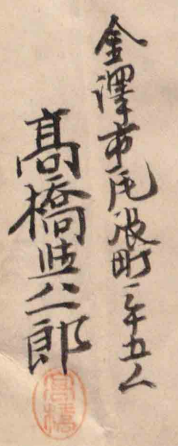 金澤市尾張町二十五人
髙橋與三郎
髙橋